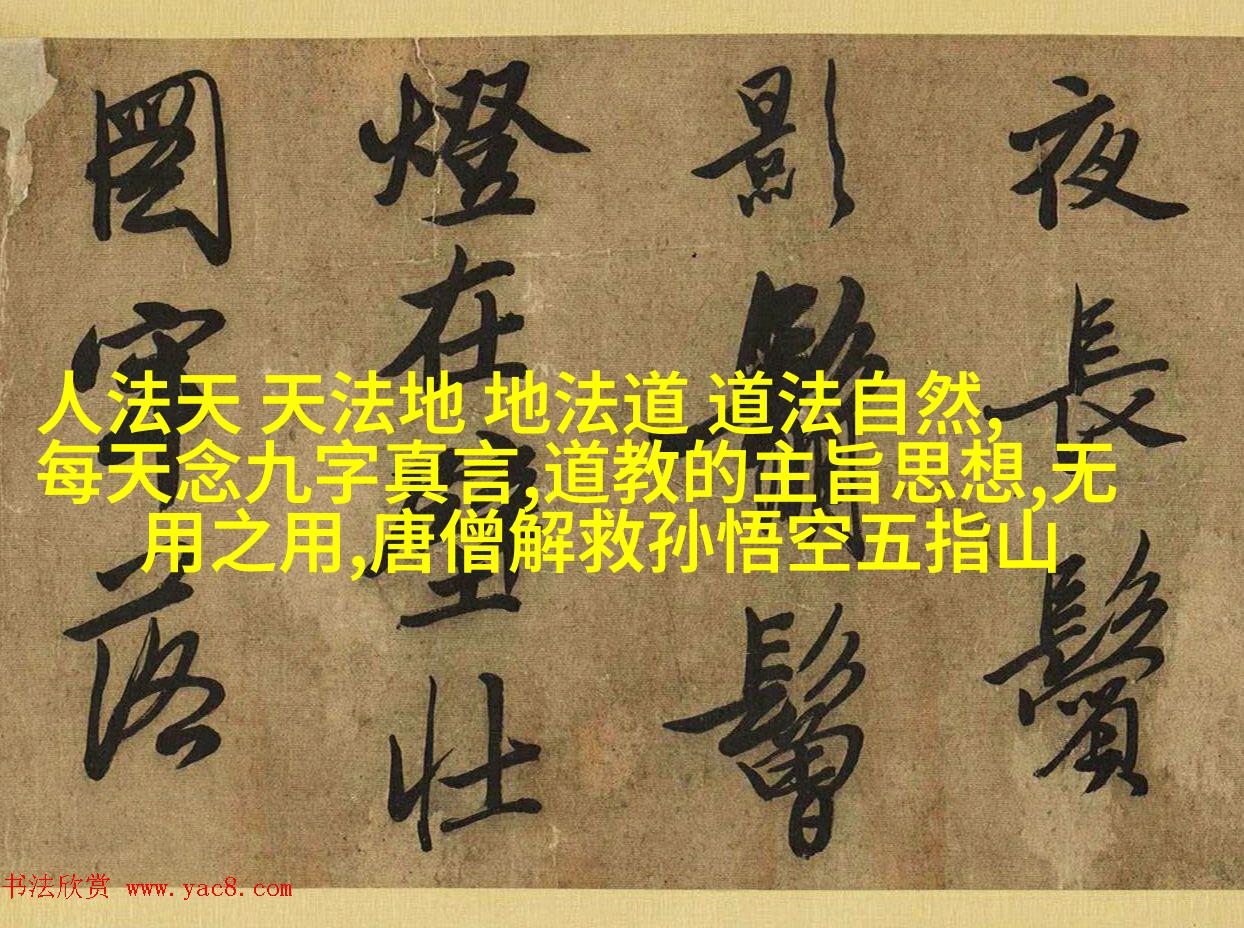 人法天 天法地 地法道 道法自然,
每天念九字真言,道教的主旨思想,无
用之用,唐僧解救孙悟空五指山
夜長鬢
影鬅鬙
燈在壁壯
圖牢落
书法欣赏 www.yac8.com